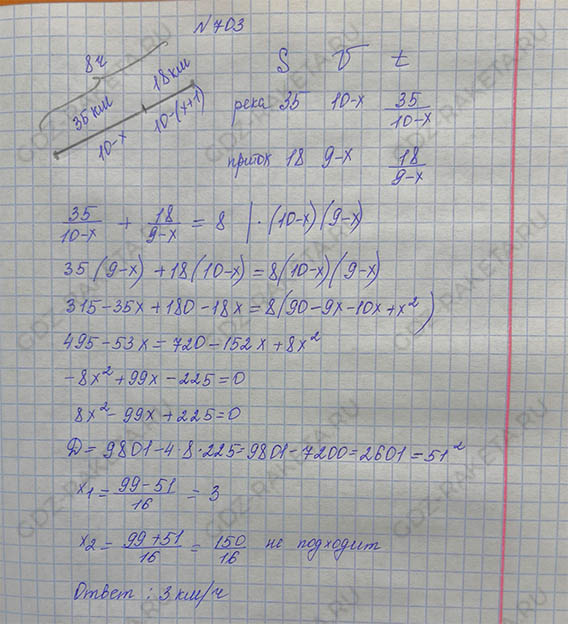 N 703
8ч
35 км 18 км
10-x 10-(x+1)
S V t
река 35 10-x 35/(10-x)
приток 18 9-x 18/(9-x)
35/(10-x) + 18/(9-x) = 8 | ·(10-x)(9-x)
35(9-x)+18(10-x)=8(10-x)(9-x)
315-35x+180-18x=8(90-9x-10x+x²)
495-53x=720-152x+8x²
-8x²+99x-225=0
8x²-99x+225=0
Д=9801-4·8·225=9801-7200=2601=51²
x₁=(99-51)/16=3
x₂=(99+51)/16=150/16 не подходит
Ответ: 3км/ч
GDZ-RAKETA.RU